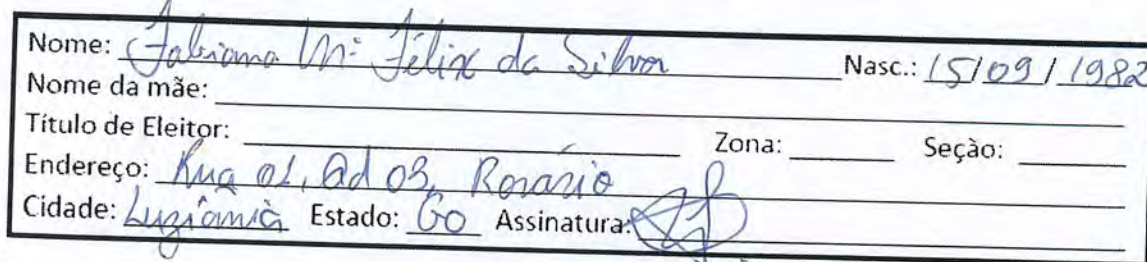 Nome: Fabiana Mª Félix da Silva Nasc.: 15/09/1982
Nome da mãe:
Título de Eleitor: Zona: Seção:
Endereço: Rua 01, Qd 03, Rosário
Cidade: Luziânia Estado: GO Assinatura: